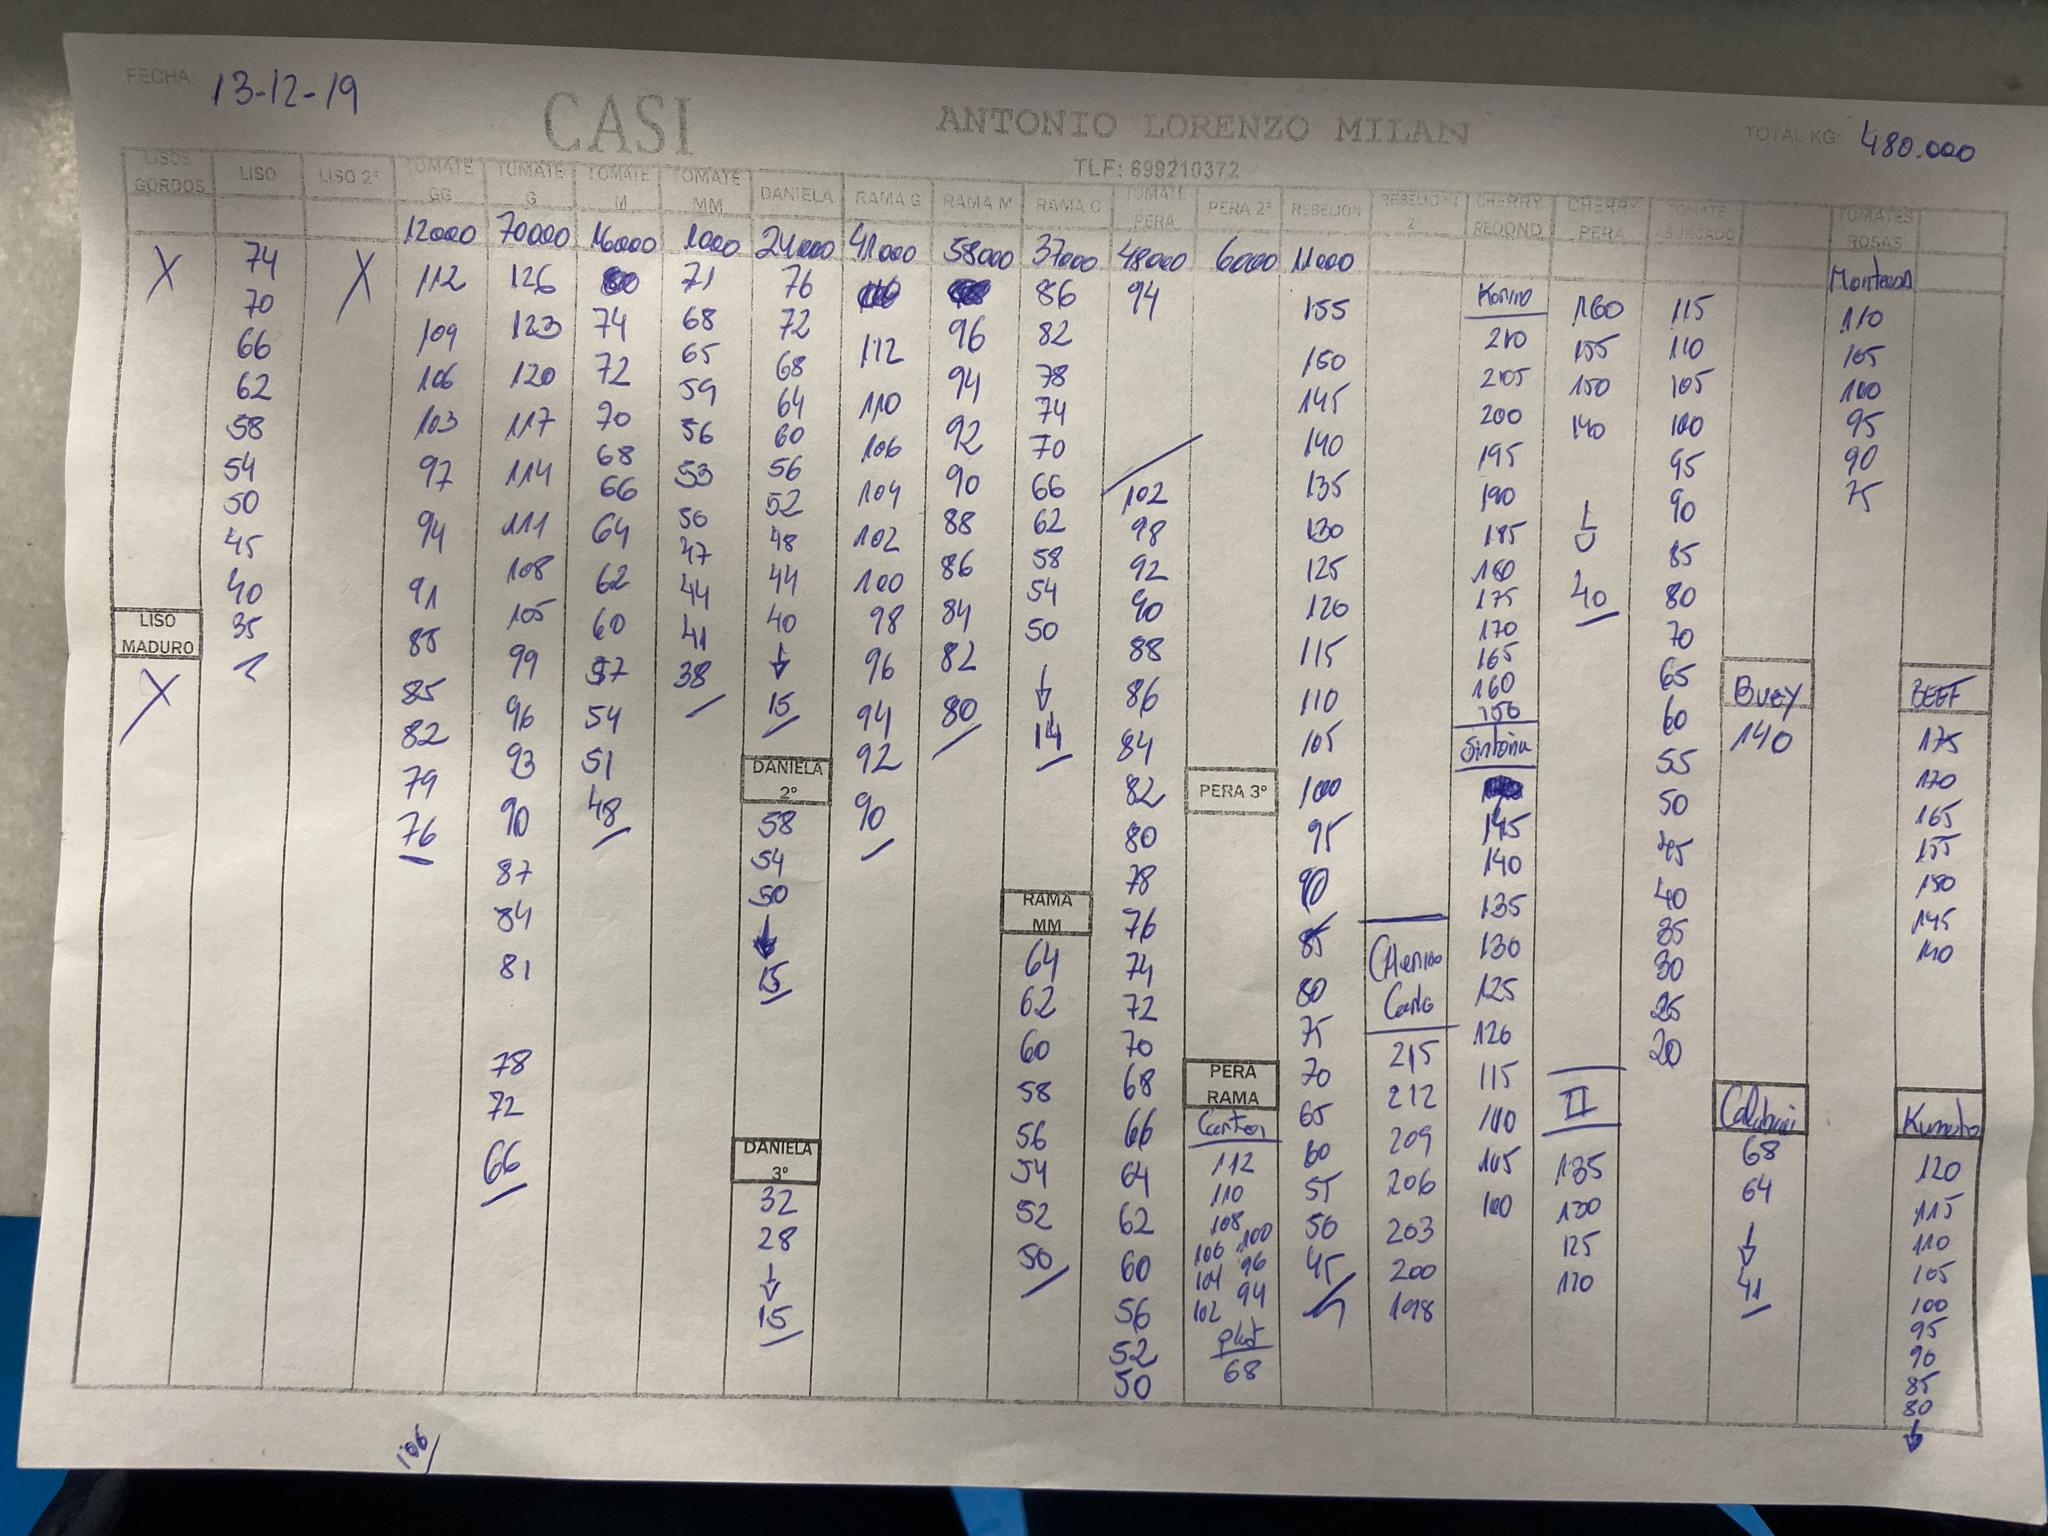 FECHA: 13-12-19
CASI
ANTONIO LORENZO MILAN
TOTAL KG: 480.000
TLF: 699210372
LISOS GORDOS
X
LISO MADURO
X
LISO
74
70
66
62
58
54
50
45
40
35
LISO 2º
X
TOMATE GG
12000
112
109
106
103
97
94
91
85
85
82
79
76
106
TOMATE G
70000
126
123
120
117
114
111
108
105
99
96
93
90
87
84
81
78
72
66
TOMATE M
16000
74
72
70
68
66
64
62
60
57
54
51
48
TOMATE MM
1000
71
68
65
59
56
53
50
47
44
41
38
DANIELA
24000
76
72
68
64
60
56
52
48
44
40
↓
15
DANIELA 2º
58
54
50
↓
15
DANIELA 3º
32
28
↓
15
RAMA G
41000
112
110
106
104
102
100
98
96
94
92
90
RAMA M
58000
96
94
92
90
88
86
84
82
80
RAMA C
37000
86
82
78
74
70
66
62
58
54
50
↓
14
RAMA MM
64
62
60
58
56
54
52
50
TOMATE PERA
48000
94
102
98
92
90
88
86
84
82
80
78
76
74
72
70
68
66
64
62
60
56
52
50
PERA 2º
6000
PERA 3º
PERA RAMA
112
110
108 100
106 96
104 94
102
68
REBELION
11000
155
150
145
140
135
130
125
120
115
110
105
100
95
90
85
80
75
70
65
60
55
50
45
REBELION 2
215
212
209
206
203
200
198
CHERRY REDOND
210
205
200
195
190
185
180
175
170
165
160
150
Sintonia
145
140
135
130
125
120
115
110
105
100
CHERRY PERA
160
155
150
140
↓
40
II
135
130
125
120
TOMATE ASURCADO
115
110
105
100
95
90
85
80
70
65
60
55
50
45
40
35
30
25
20
BUEY
140
68
64
↓
41
TOMATES ROSAS
110
105
100
95
90
75
BEEF
175
170
165
155
150
145
140
Kumato
120
115
110
105
100
95
90
85
80
↓